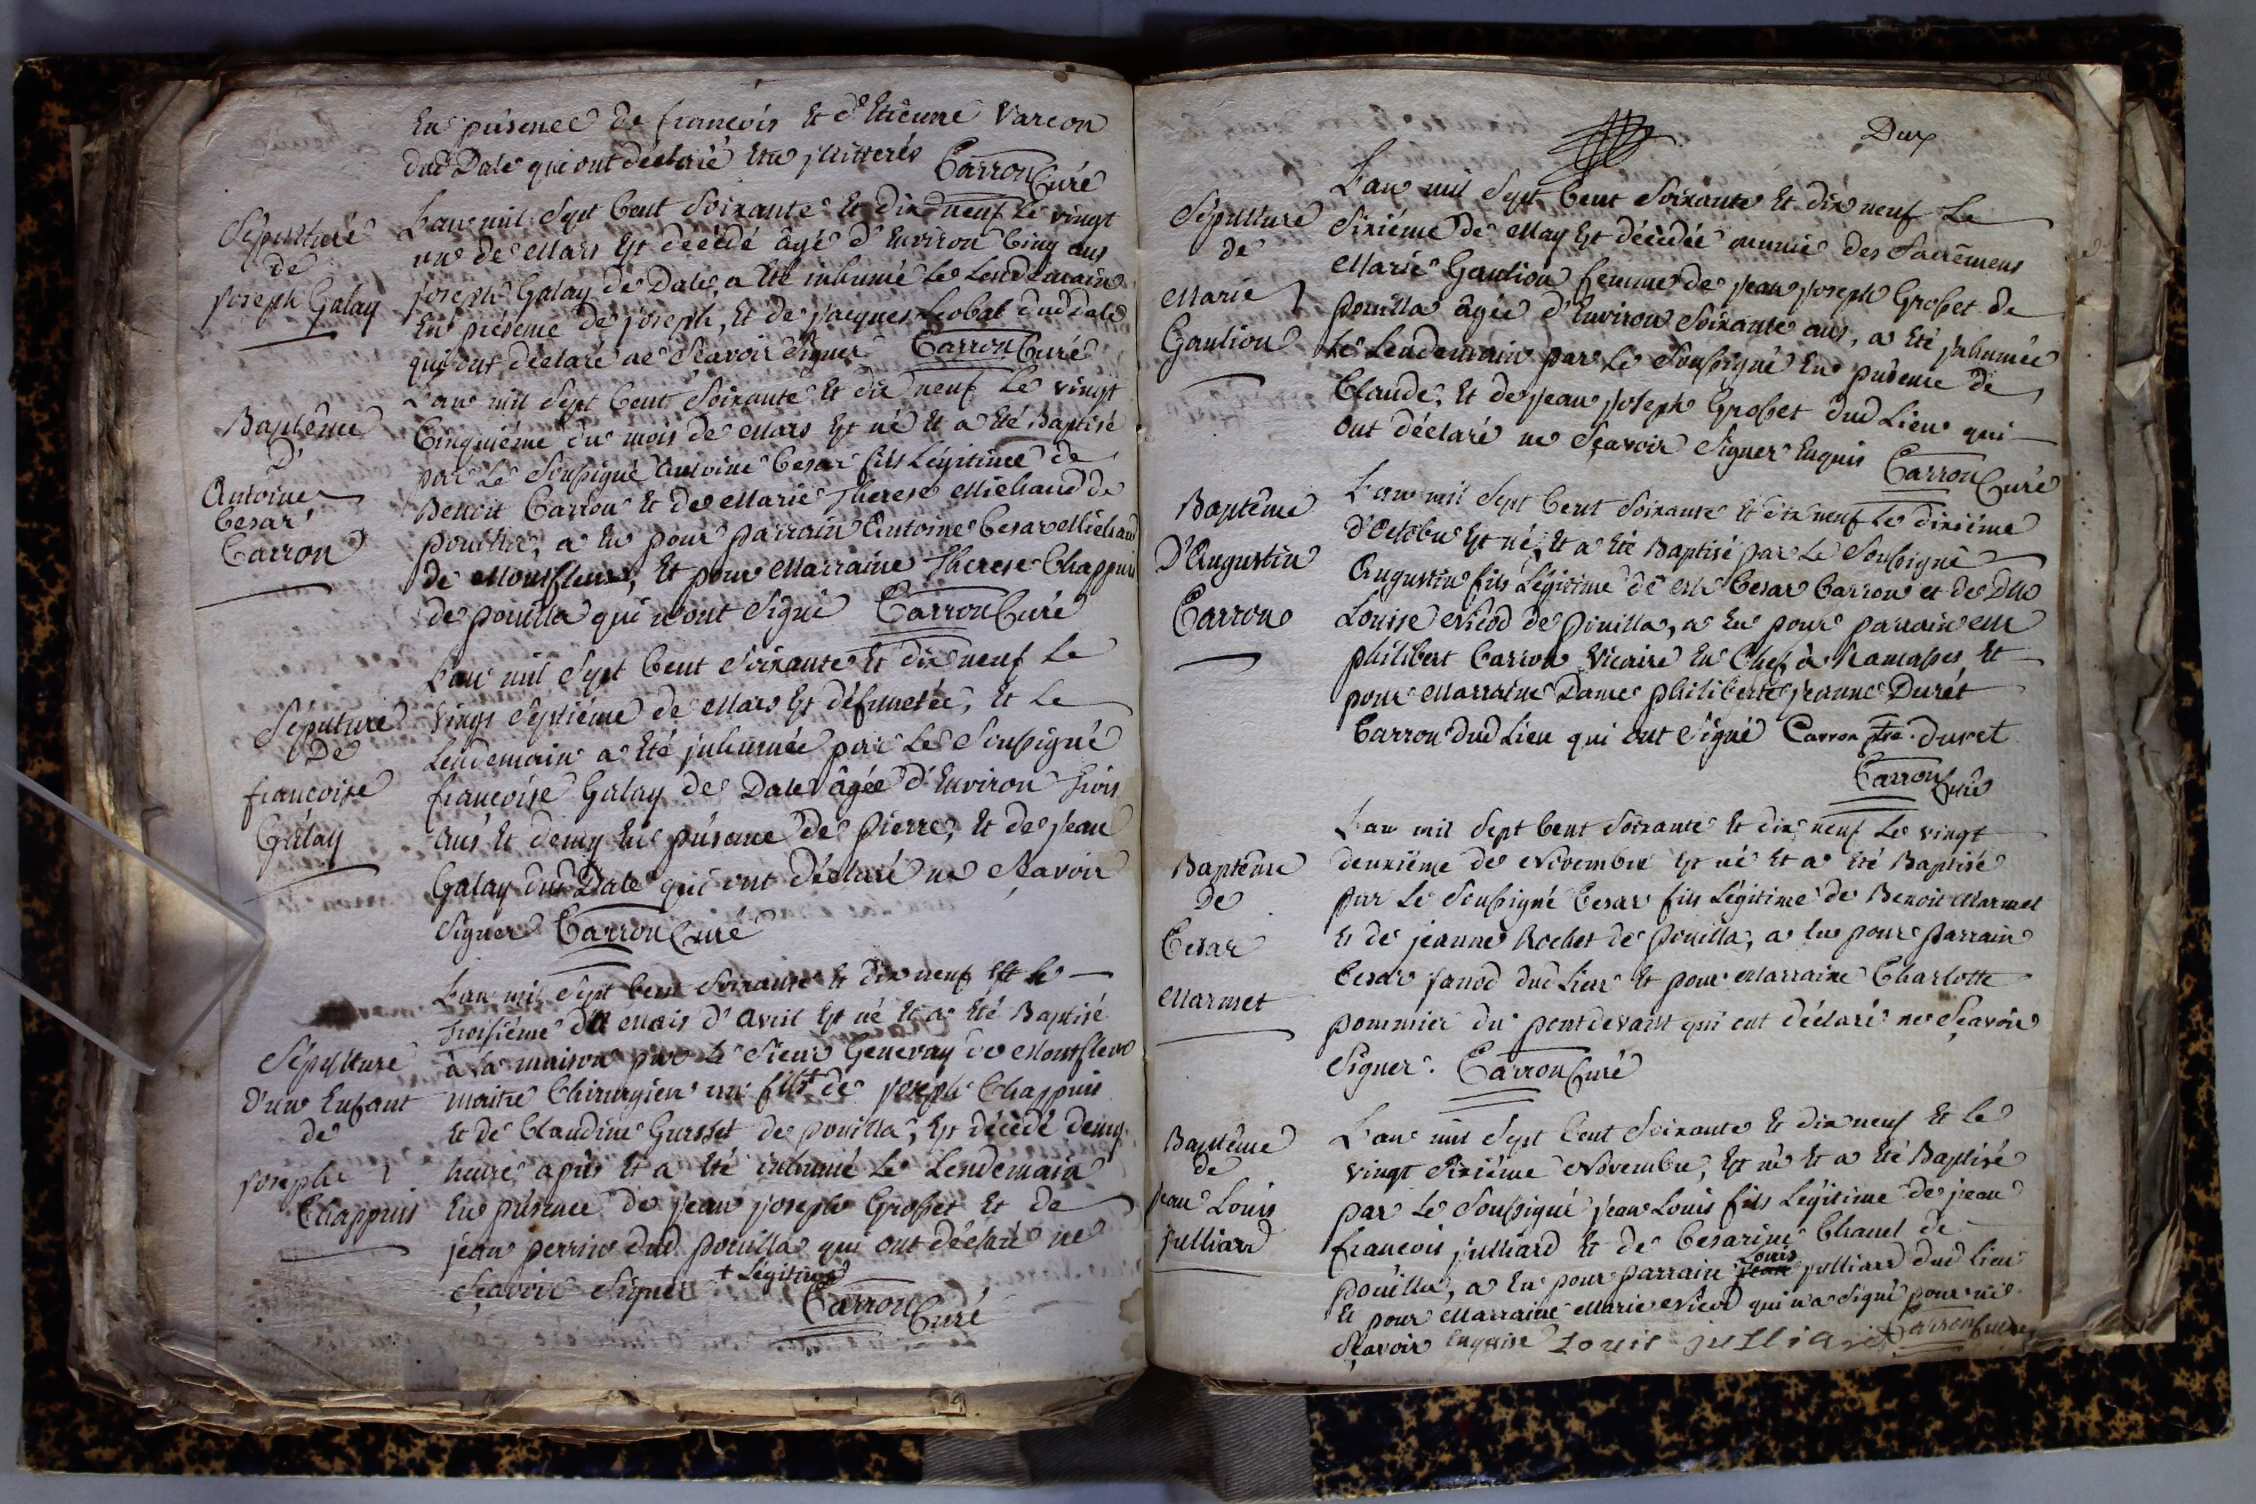 En présence de francois Et d'Etienne Vareon
dud Dale qui ont déclaré Etre jllitterés
Carron Curé
Sépulture
de
joseph Galay
L'an mil Sept Cent Soixante Et dix neuf Le vingt
un de Mars Est decédé âgé d'Environ Cinq ans
joseph Galay de Dale, a Eté inhumé Le Lendemain
En présence de joseph, Et de jacques Gobet dud Dale
qui ont déclaré ne Scavoir Signer Carron Curé
Baptême
D'
Antoine
Cesar
Carron
L'an mil Sept Cent Soixante Et dix neuf Le vingt
Cinquiéme du mois de Mars Est né Et a Eté Baptisé
par Le Soussigné Antoine Cesar fils Légitime de
Benoit Carron Et de Marie Therese Michaud de
pouilla, a Eu pour parrain Antoine Cesar Michaud
de Montfleur, Et pour Marraine Therese Chappuis
de pouilla qui n'ont Signé Carron Curé
Séputure
De
francoise
Galay
L'an mil Sept Cent Soixante Et dix neuf Le
vingt Septiéme de Mars Est défunctée, Et Le
Lendemain a Eté jnhumée par Le Soussigné
francoise Galay de Dale âgée d'Environ trois
ans Et demy En présence de Pierre, Et de jean
Galay dud Dale qui ont déclaré ne Sçavoir
Signer Carron Curé
Sépulture
D'un Enfant
de
joseph
Chappuis
L'an mil Sept Cent Soixante Et dix neuf Et le
troisiéme du Mois d'Avril Est né Et a Eté Baptisé
à la maison par le Sieur Genevay de Montfleur
maitre Chirurgien un fils + de joseph Chappuis
Et de Claudine Gursset de pouilla, Est décédé demy
heure après Et a Eté inhumé Le Lendemain
En présence de jean joseph Grobet Et de
jean perrin dud pouilla qui ont déclaré ne
Sçavoir Signer + Légitime
Carron Curé
Dux
Sépulture
de
Marie
Gaution
L'an mil Sept Cent Soixante Et dix neuf Le
Sixiéme de May Est décédée munie des Sacrémens
Marie Gaution femme de jean joseph Grobet de
pouilla âgée d'Environ Soixante ans, a Eté jnhumée
Le Lendemain par Le Soussigné En présence de
Claude, Et de jean joseph Grobet dud Lieu qui
ont déclaré ne Sçavoir Signer Enquis Carron Curé
Baptême
D'Augustin
Carron
L'an mil Sept Cent Soixante Et dix neuf Le dixiéme
d'Octobre Est né, Et a Eté Baptisé par Le Soussigné
Augustin fils Légitime de Mr Cesar Carron et de Dlle
Louise Nicod de Pouilla, a Eu pour parrain Mr
philibert Carron Vicaire En Chef à Ramasses, Et
pour Marraine Dame philiberte jeanne Durét
Carron dud Lieu qui ont Signé Carron ptre. duret
Carron Curé
Baptême
De
Cesar
Marmet
L'an mil Sept Cent Soixante Et dix neuf Le vingt
deuxiéme de Novembre Est né Et a Eté Baptisé
par Le Soussigné Cesar fils Légitime de Benoit Marmet
Et de jeanne Rochet de Pouilla, a Eu pour parrain
Cesar janod dud Lieu Et pour Marraine Charlotte
pommier du pont devaux qui ont déclaré ne Sçavoir
Signer. Carron Curé
Baptême
de
jean Louis
julliard
L'an mil Sept Cent Soixante Et dix neuf Et Le
vingt Sixiéme Novembre, Est né Et a Eté Baptisé
par Le Soussigné jean Louis fils Légitime de jean
francois julliard Et de Cesarine Chanel de
Louis
pouilla, a Eu pour parrain jean julliard dud Lieu
Et pour Marraine Marie Nicod qui n'a Signé pour ne
Sçavoir Enquise Louis julliard Carron Curé